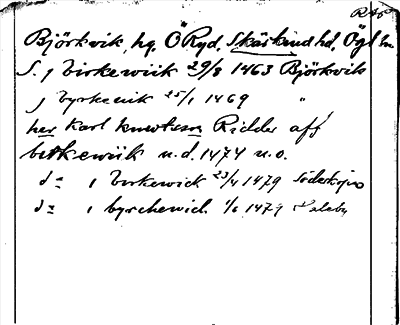 Björkvik, hg, Ö Ryd, Skärkind hd, Ögl ln
S. j Birkewiik 29/8 1463 Björkvik
j byrkeuik 25/1 1469 "
her Karl knwtsson Ridder aff
betkewiik u.d. 1474 u.o.
d= i birkewick 23/4 1479 Söderköping
d= i byrchewich 1/6 1479